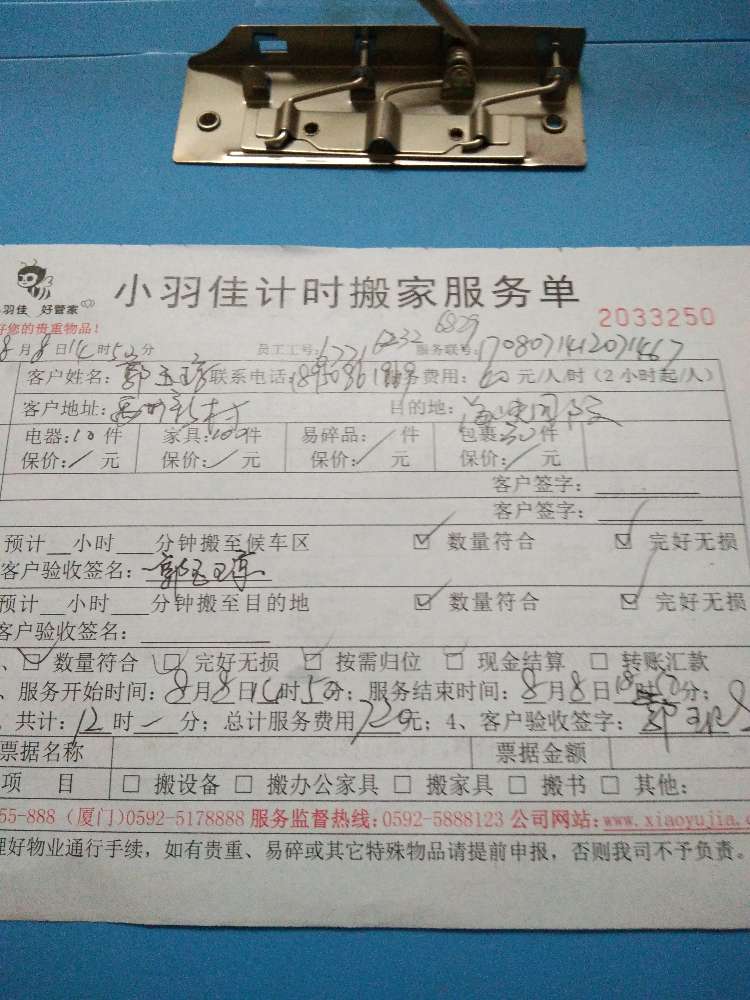 小羽佳计时搬家服务单
羽佳 好管家
2033250
好您的贵重物品!
8月8日14时52分 员工工号: 服务联号: 1708071412071467
6232 6829
客户姓名: 郭玉 联系电话: 费用: 60元/人/时(2小时起/人)
客户地址: 村 目的地:
电器:10件 家具:100件 易碎品:/件 包裹 件
保价:/元 保价:/元 保价:/元 保价:/元
客户签字:
客户签字:
预计__小时___分钟搬至候车区 ☑ 数量符合 ☑ 完好无损
客户验收签名: 郭玉
预计__小时___分钟搬至目的地 ☑ 数量符合 ☑ 完好无损
客户验收签名:
、☑ 数量符合 ☑ 完好无损 ☑ 按需归位 ☑ 现金结算 □ 转账汇款
、服务开始时间:8月8日 时50分; 服务结束时间:8月8日18时50分;
、共计:12时一分; 总计服务费用720元; 4、客户验收签字: 郭
票据名称 票据金额
项 目 □ 搬设备 □ 搬办公家具 □ 搬家具 □ 搬书 □ 其他:
55-888 (厦门)0592-5178888 服务监督热线:0592-5888123 公司网站:www.xiaoyujia.c
理好物业通行手续,如有贵重、易碎或其它特殊物品请提前申报,否则我司不予负责。